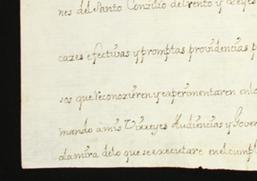 nes del Santo Conzilio de trento y ex
cazes efectivas y promptas providencias p
sos que reconozieren y experimentaren en lo
mando a mis Virreyes Audiencias y Gover
la mira de lo que se executare en el cumpl